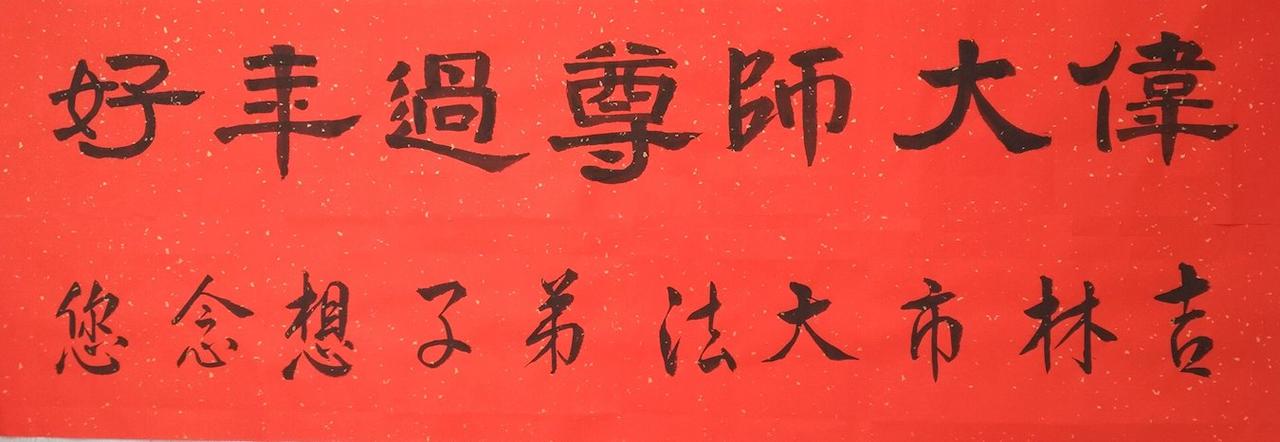 偉大師尊過年好
吉林市大法弟子想念您